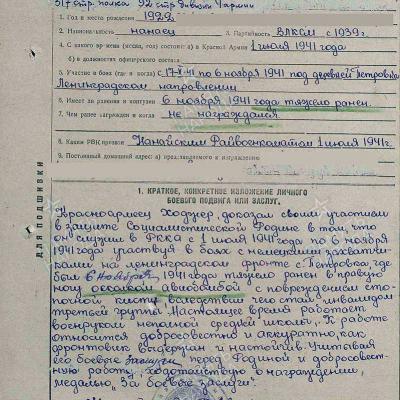 317 стр. полка 92 стр. дивизии
1. Год и место рождения 1922
2. Национальность нанаец 3. Партийность ВЛКСМ с 1939 г.
4. С какого времени (месяц, год) состоит(-л) в Красной Армии 1 июля 1941 года
б) в должностях офицерского состава
5. Участие в боях (где и когда) с 17-X-41 по 6 ноября 1941 под деревней Петровка
Ленинградском направлении
6. Имеет ли ранения и контузии 6 ноября 1941 года тяжело ранен.
7. Чем ранее награжден и когда не награждался
8. Каким РВК призван Нанайским Райвоенкоматом 1 июля 1941 г.
9. Постоянный домашний адрес:
ДЛЯ ПОДШИВКИ
1. КРАТКОЕ, КОНКРЕТНОЕ ИЗЛОЖЕНИЕ ЛИЧНОГО
БОЕВОГО ПОДВИГА ИЛИ ЗАСЛУГ.
Красноармеец Ходжер, доказал своим участием
в защите Социалистической Родине в том, что
он служил в РККА с 1 июля 1941 года по 6 ноября
1941 года участвуя в боях с немецкими захватчи-
ками на ленинградском фронте с Петровка где
был 6 ноября 1941 года тяжело ранен в правую
ногу осколкой авиабомбой с повреждением сто-
почной кисти вследствем чего стал инвалидом
третьей группы. Настоящее время работает
военруком неполной средней школы. К работе
относится добросовестно и аккуратно, как
фронтовик выдержан и настойчив. Учитывая
его боевые заслуги перед Родиной и добросовест-
ную работу, ходотайствую о награждении,
медалью "За боевые заслуги".